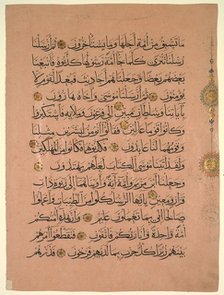 ما تسبق من أمة أجلها وما يستأخرون ثم أرسلنا
رسلنا تترى كلما جاء أمة رسولها كذبوه فأتبعنا
بعضهم بعضا وجعلناهم أحاديث فبعدا لقوم لا
يؤمنون ثم أرسلنا موسى وأخاه هارون
بآياتنا وسلطان مبين إلى فرعون وملئه فاستكبروا
وكانوا قوما عالين فقالوا أنؤمن لبشرين مثلنا
وقومهما لنا عابدون فكذبوهما فكانوا من المهلكين
ولقد آتينا موسى الكتاب لعلهم يهتدون
وجعلنا ابن مريم وأمه آية وآويناهما إلى ربوة ذات
قرار ومعين يا أيها الرسل كلوا من الطيبات واعملوا
صالحا إني بما تعملون عليم وإن هذه أمتكم
أمة واحدة وأنا ربكم فاتقون فتقطعوا أمرهم
بينهم زبرا كل حزب بما لديهم فرحون فذرهم